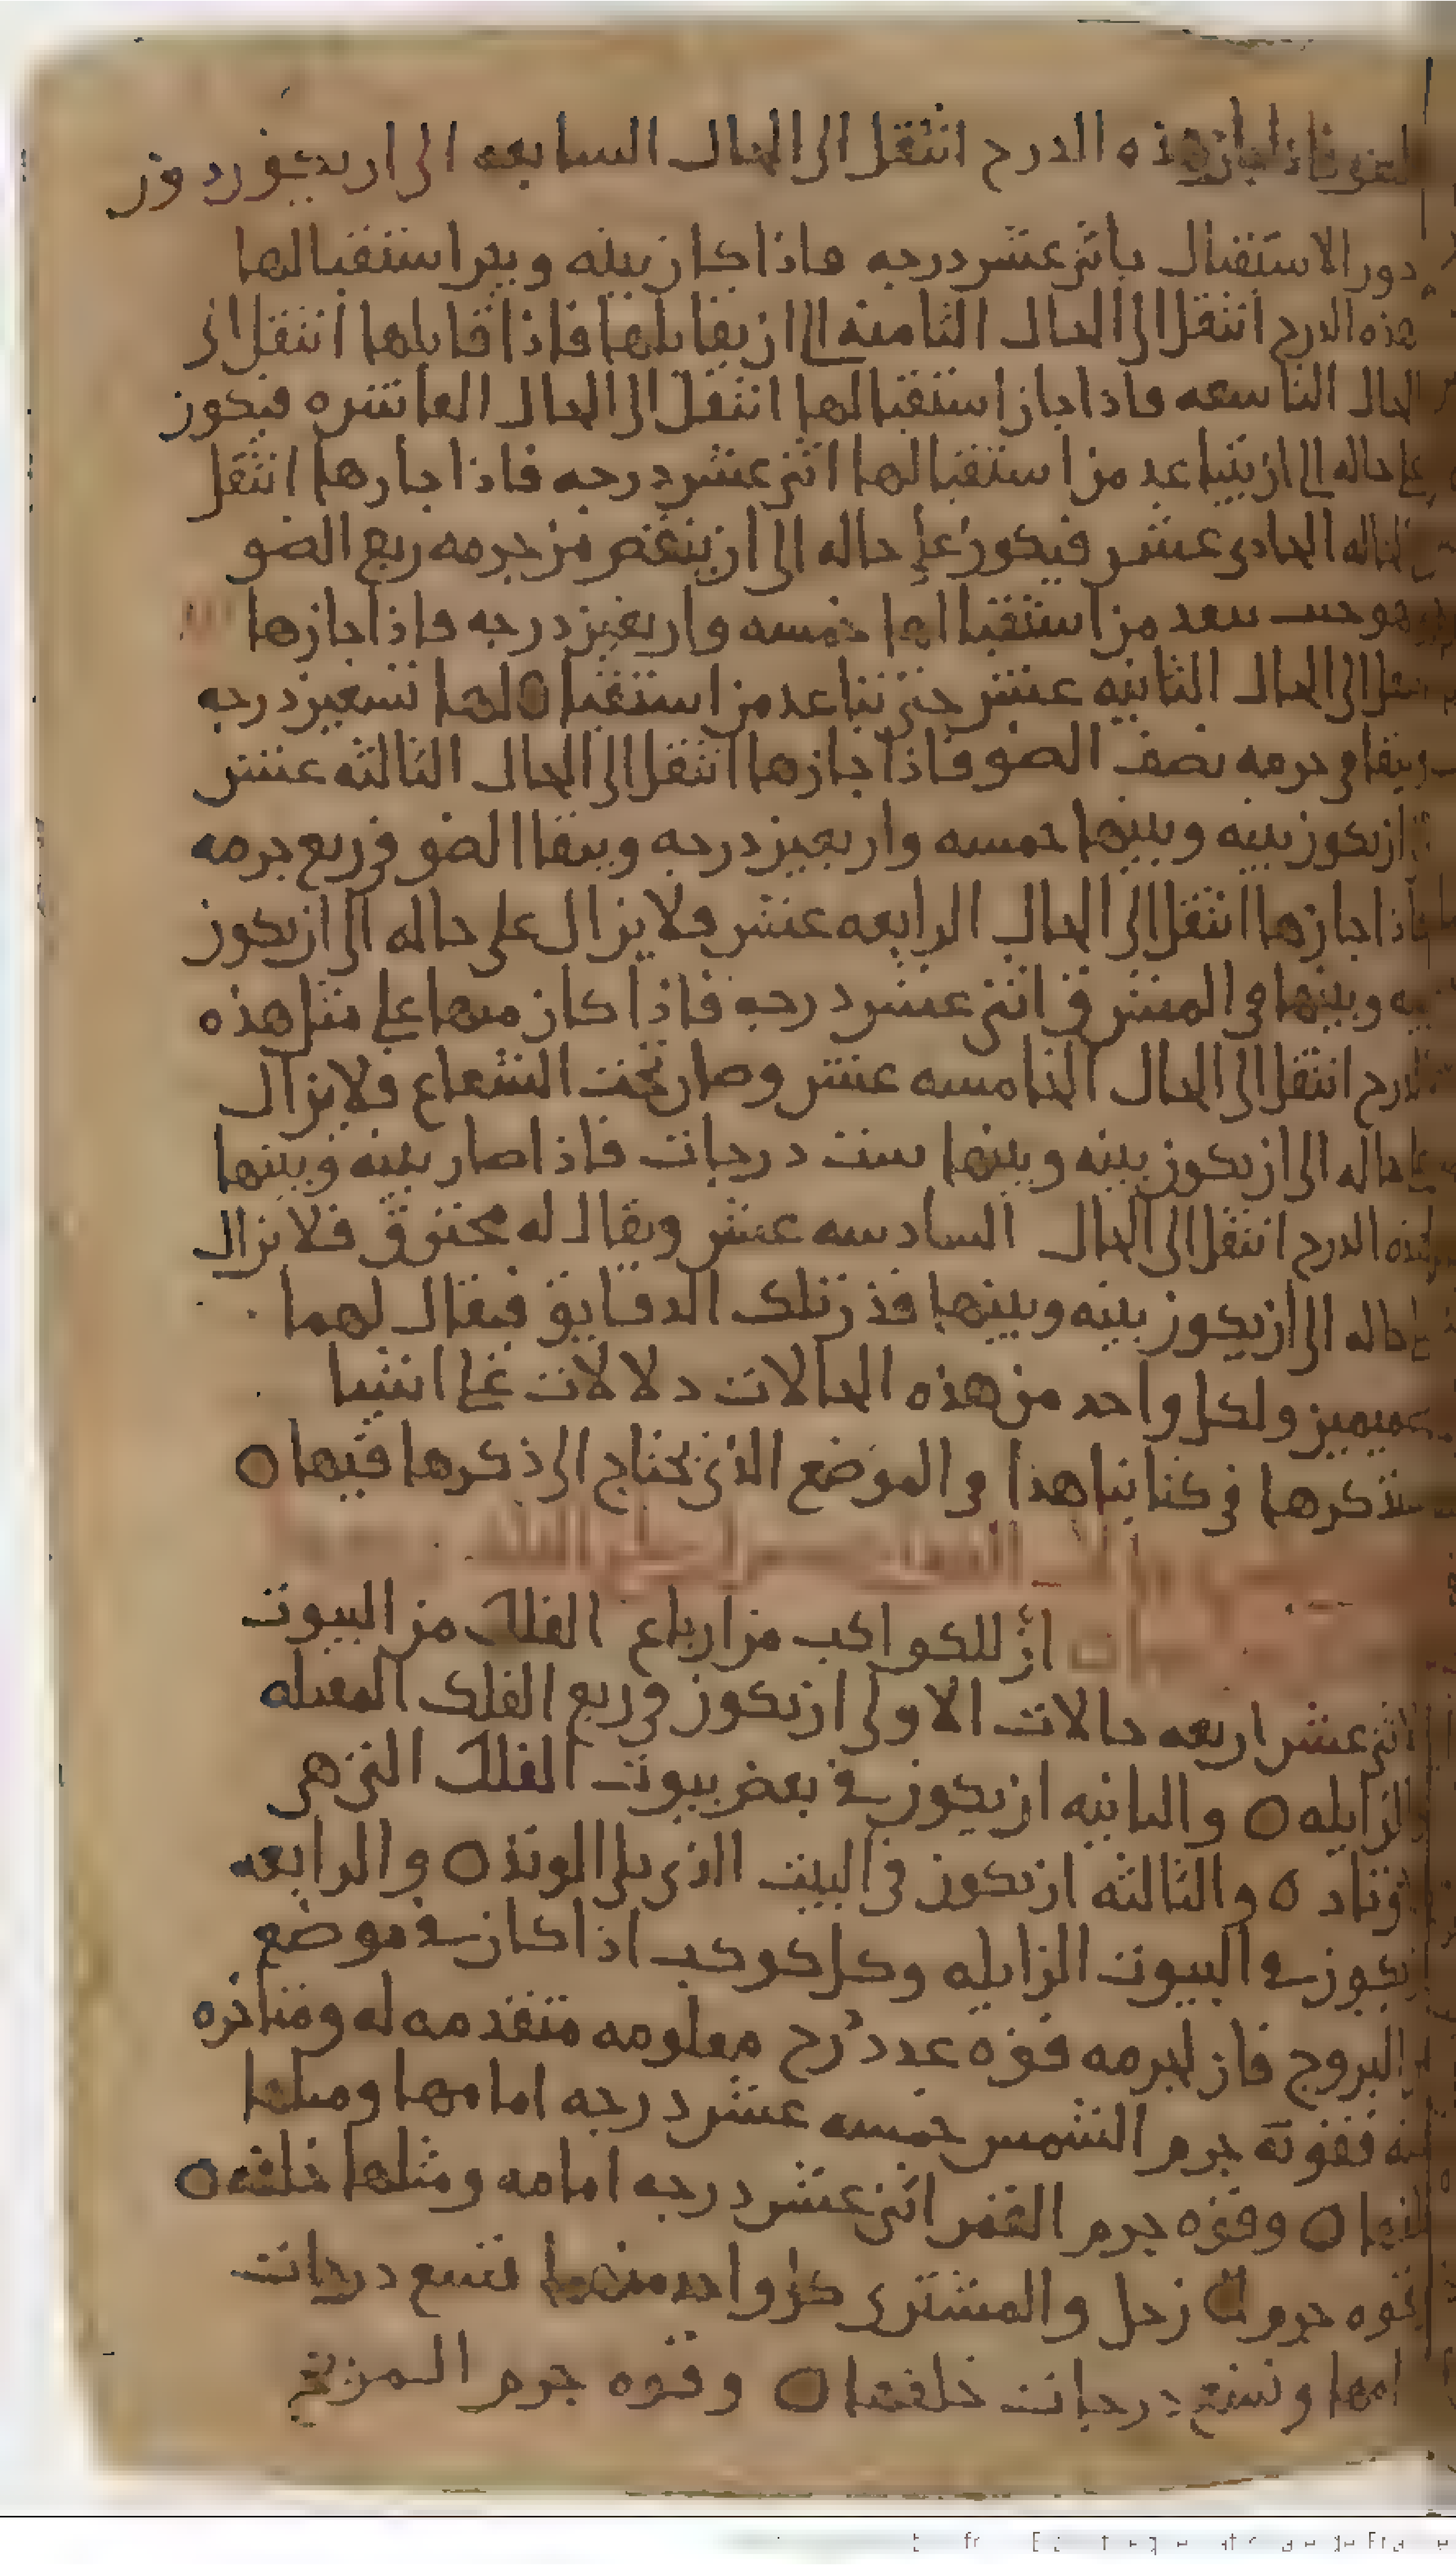 الضو فاذا جاز هذه الدرج انتقل الى الحال السابعه الى ان يكون دون
دور الاستقبال باثنى عشر درجه فاذا كان بينه وبين استقبالها
هذه الدرج انتقل الى الحال الثامنه الى ان يقابلها فاذا قابلها انتقل الى
الحال التاسعه فاذا جاز استقبالها انتقل الى الحال العاشره فيكون
على حاله الى ان يتباعد من استقبالها اثنى عشر درجه فاذا جازها انتقل
الحاله الحادى عشر فيكون على حاله الى ان ينقص من جرمه ربع الضو
وهو حيث يبعد من استقبالها خمسه واربعين درجه فاذا جازها
انتقل الى الحال الثانيه عشر حتى يتباعد من استقبالها تسعين درجه
ويبقا فى جرمه نصف الضو فاذا جازها انتقل الى الحال الثالثه عشر
ان يكون بينه وبينها خمسه واربعين درجه ويبقا الضو فى ربع جرمه
فاذا جازها انتقل الى الحال الرابعه عشر فلا يزال على حاله الى ان يكون
بينه وبينها فى المشرق اثنى عشر درجه فاذا كان منها على مثل هذه
الدرج انتقل الى الحال الخامسه عشر وصار تحت الشعاع فلا يزال
على حاله الى ان يكون بينه وبينها ست درجات فاذا صار بينه وبينها
هذه الدرج انتقل الى الحال السادسه عشر ويقال له محترق فلا يزال
على حاله الى ان يكون بينه وبينها قدر تلك الدقايق فيقال لهما
صميمين ولكل واحد من هذه الحالات دلالات على اشيا
سنذكرها فى كتابنا هذا فى الموضع الذى يحتاج الى ذكرها فيها ٥
ان للكواكب من ارباع الفلك من البيوت
الاثنى عشر اربعه حالات الاولى ان تكون فى ربع الفلك المقبله
والزايله ٥ والثانيه ان يكون فى بعض بيوت الفلك التى هى
اوتاد ٥ والثالثه ان تكون فى البيت الذى يلى الوتد ٥ والرابعه
يكون فى البيوت الزايله وكل كوكب اذا كان فى موضع
البروج فان لجرمه قوه عدد درج معلومه متقدمه له ومتاخره
عنه فقوة جرم الشمس خمسه عشر درجه امامها ومثلها
خلفها ٥ وقوه جرم القمر اثنى عشر درجه امامه ومثلها خلفه ٥
وقوه جرم زحل والمشترى كل واحد منهما تسع درجات
امامها وتسع درجات خلفها ٥ وقوه جرم المريخ